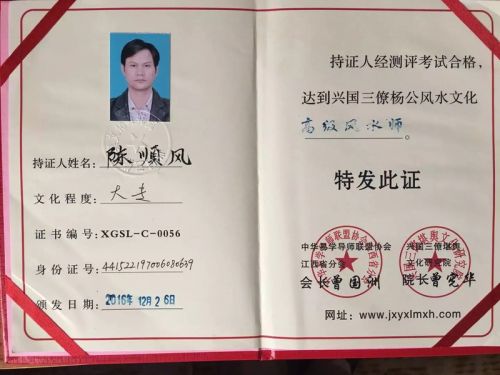 持证人姓名: 陈顺风
文化程度: 大专
证书编号: XGSL-C-0056
身份证号: 441522197006080639
颁发日期: 2016年12月26日
持证人经测评考试合格,
达到兴国三僚杨公风水文化
高级风水师
特发此证
中华易学导师联盟协会
江西省分会
会长曾国洲
兴国三僚堪舆
文化研究院
院长曾宪华
网址: www.jxyxlmxh.com